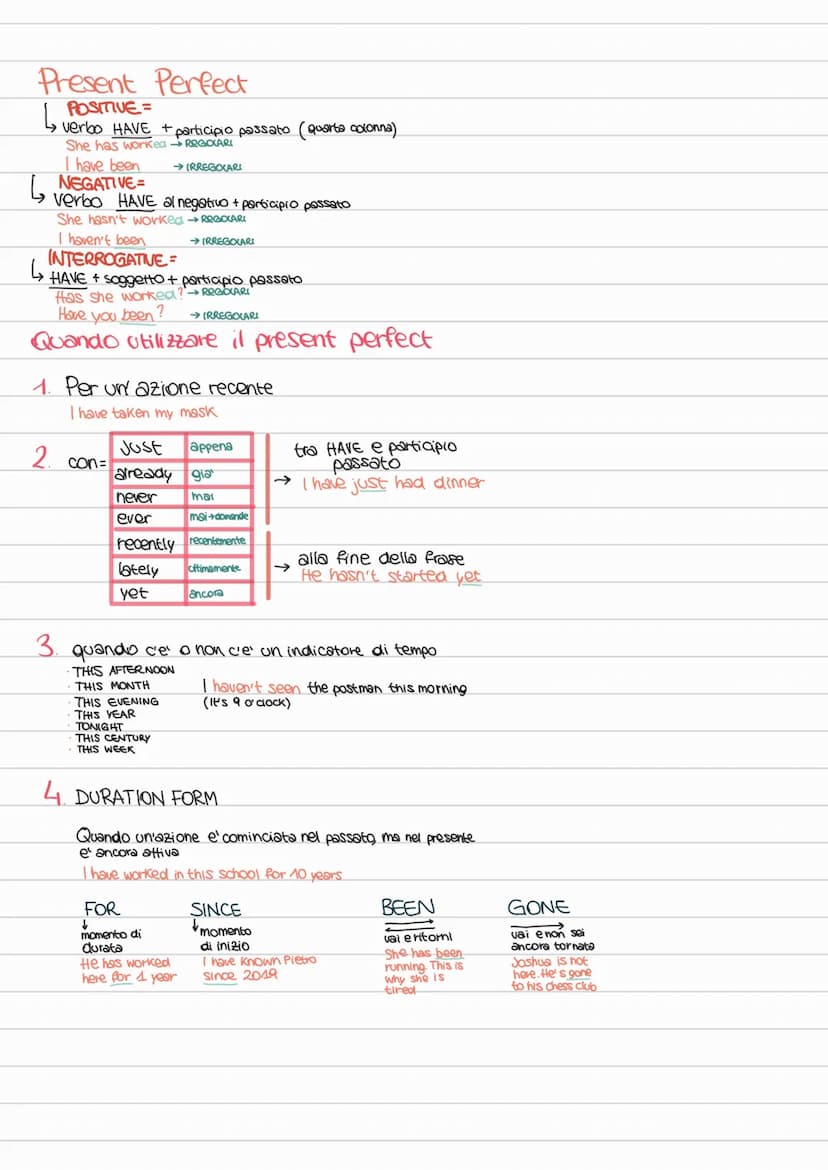 Present Perfect
POSITIVE =
verbo HAVE + participio passato (quarta colonna)
She has worked → REGOLARI
I have been → IRREGOLARI
NEGATIVE =
verbo HAVE al negativo + participio passato
She hasn't worked → REGOLARI
I haven't been → IRREGOLARI
INTERROGATIVE =
HAVE + soggetto + participio passato
Has she worked? → REGOLARI
Have you been? → IRREGOLARI
Quando utilizzare il present perfect
1. Per un' azione recente
I have taken my mask
2. con=
just appena
already gia'
never mai
ever mai→domande
recently recentemente
lately ultimamente
yet ancora
tra HAVE e participio
passato
→ I have just had dinner
→ alla fine della frase
He hasn't started yet
3. quando c'e' o non c'e' un indicatore di tempo
· THIS AFTERNOON
· THIS MONTH
· THIS EVENING
· THIS YEAR
· TONIGHT
· THIS CENTURY
· THIS WEEK
I haven't seen the postman this morning
(It's 9 o'clock)
4. DURATION FORM
Quando un'azione e' cominciata nel passato, ma nel presente
e' ancora attiva
I have worked in this school for 10 years
FOR
momento di
durata
He has worked
here for 1 year
SINCE
momento
di inizio
I have known Pietro
since 2019
BEEN
vai e ritorni
She has been
running. This is
why she is
tired
GONE
vai e non sei
ancora tornato
Joshua is not
here. He's gone
to his chess club